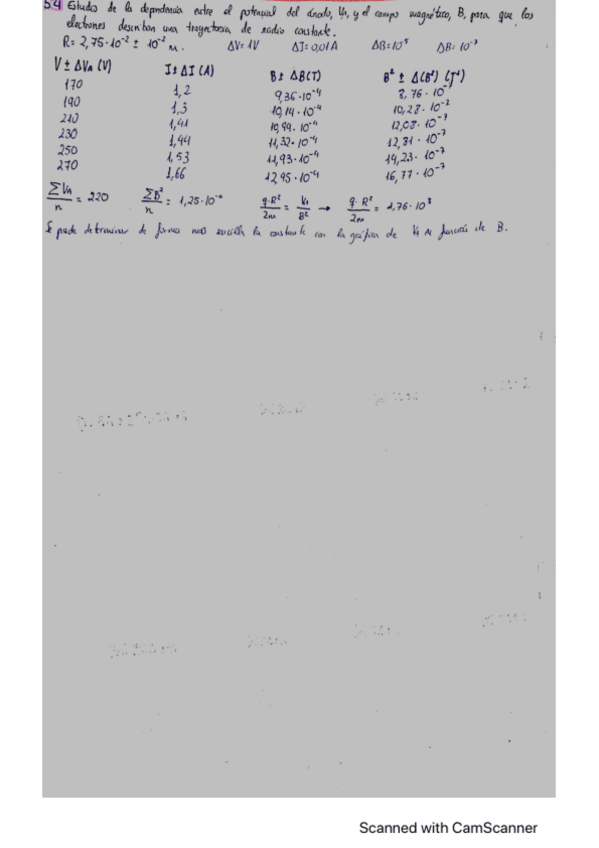 5.4 Estudio de la dependencia entre el potencial del ánodo, Va, y el campo magnético, B, para que los
electrones describan una trayectoria de radio constante.
R= 2,75·10⁻² ± 10⁻² m. ΔV=1V ΔI=0,01A ΔB=10⁵ ΔB=10⁻³
V ± ΔVa (V) I± ΔI (A) B± ΔB(T) B² ± Δ(B²) (T²)
170 1,2 9,36·10⁻⁴ 8,76·10⁻⁷
190 1,3 10,14·10⁻⁴ 10,28·10⁻⁷
210 1,41 10,99·10⁻⁴ 12,08·10⁻⁷
230 1,44 11,32·10⁻⁴ 12,81·10⁻⁷
250 1,53 11,93·10⁻⁴ 14,23·10⁻⁷
270 1,66 12,95·10⁻⁴ 16,77·10⁻⁷
ΣVa/n = 220 ΣB²/n = 1,25·10⁻⁶ q·R²/2m = Va/B² → q·R²/2m = 1,76·10⁸
Se puede determinar de forma más sencilla la constante con la gráfica de Va en función de B.
Scanned with CamScanner